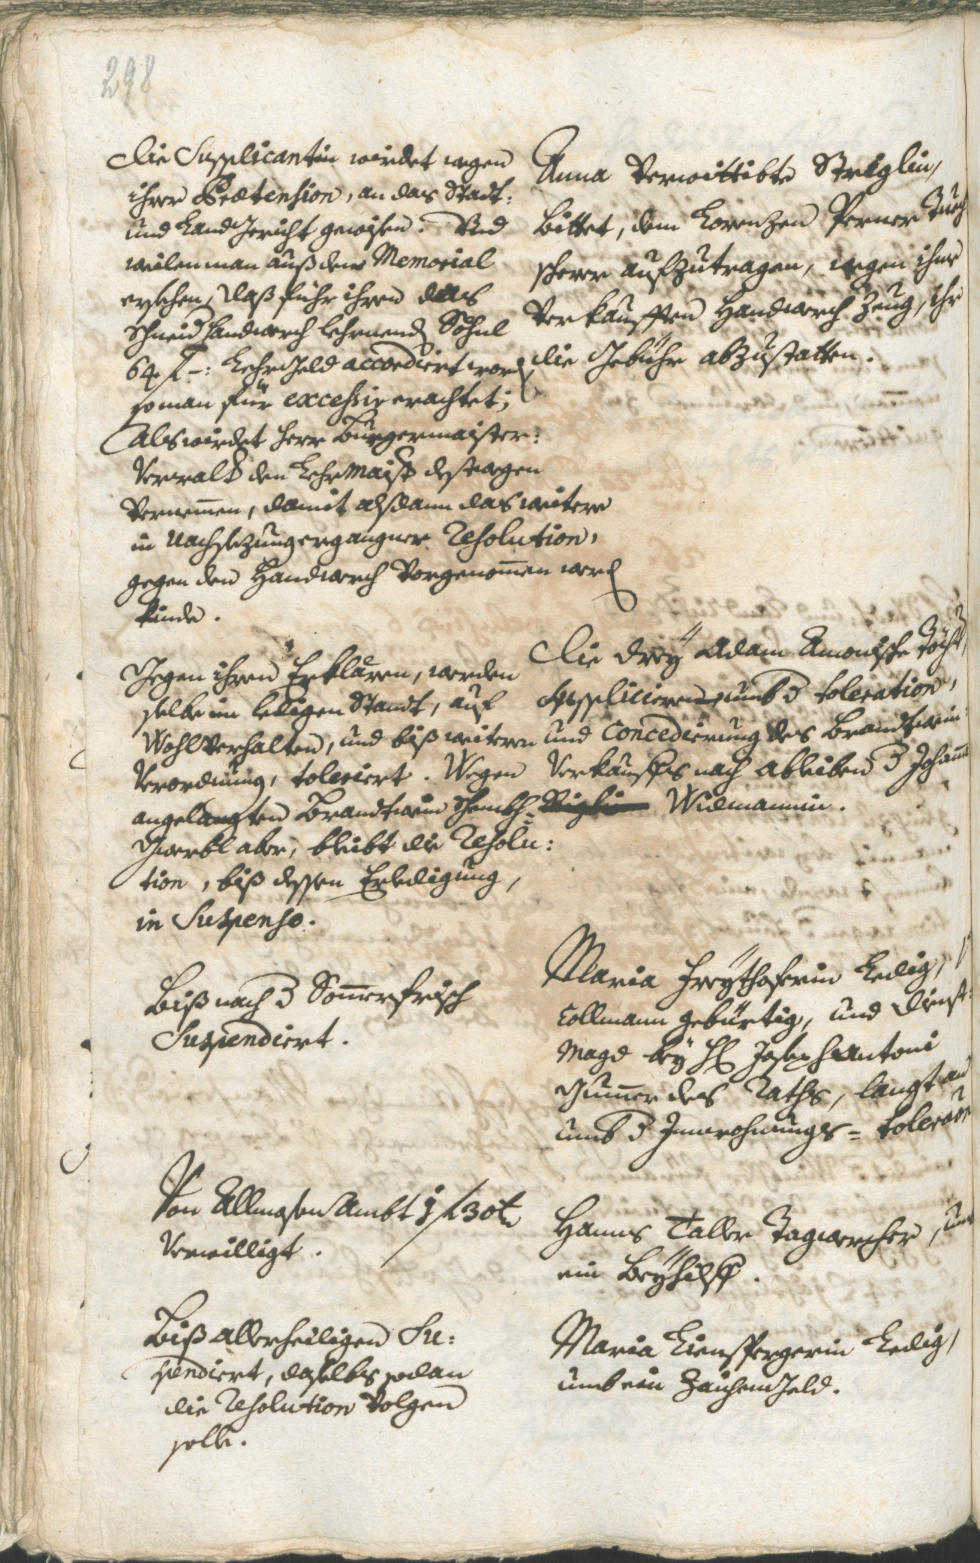 298
Die Supplicantin wirdet wegen
ihrer Praetension, an das Statt-
und Landtgericht gewisen. Und
weilen man auß dem Memorial
ersehen, daß führ ihren das
Schneid Handwerch lehrnend Söhnl
64 f -: Lehrgeld accordiert word
so man für excessiv erachtet;
Als wirdet Herr Burgermaister-
Verwalt den Lehrmaist deßwegen
Vernemmen, damit alßdann das weitere
in Nachsezung ergangner Resolution,
gegen den Handwerch Vorgenommen werd
künde.
Anna Verwittibte Striglin,
bittet, dem Lorenzen Perner Tuech
scherer aufzutragen, wegen ihme
Verkaufften Handwerch Zeug, ihr
die Gebühr abzustatten.
Gegen ihren Erklären, werden
selbe im ledigen Standt, auf
Wohlverhalten, und biß weitern
Verordnung, toleriert. Wegen
angelangten Brandtwein Schenkh-
Gwerbl aber, bleibt die Resolu-
tion, biß dessen Erledigung,
in Suspenso.
Die drey Adam Amonische Töcht
supplicieren umb d toleration,
und Concedierung des Brandtwein
Verkauffs nach ableiben d Johanna
Widmannin.
Biß nach d Sommerfrisch
Suspendiert.
Maria Freythoferin Ledig,
Collmann gebürtig, und Dienst-
Magd bey H Joseph Antoni
Gummer des Raths, langt an
umb d Innwohnungs- toleration
Von Allmosen Ambt 1 f 30 k
Verwilligt.
Hanns Taller Tagwercher, umb
ein Beyhilff.
Biß Allerheiligen Su-
spendiert, daselbs sodan
die Resolution Volgen
solle.
Maria Liensspergerin Ledig,
umb ein Zaichen Geld.